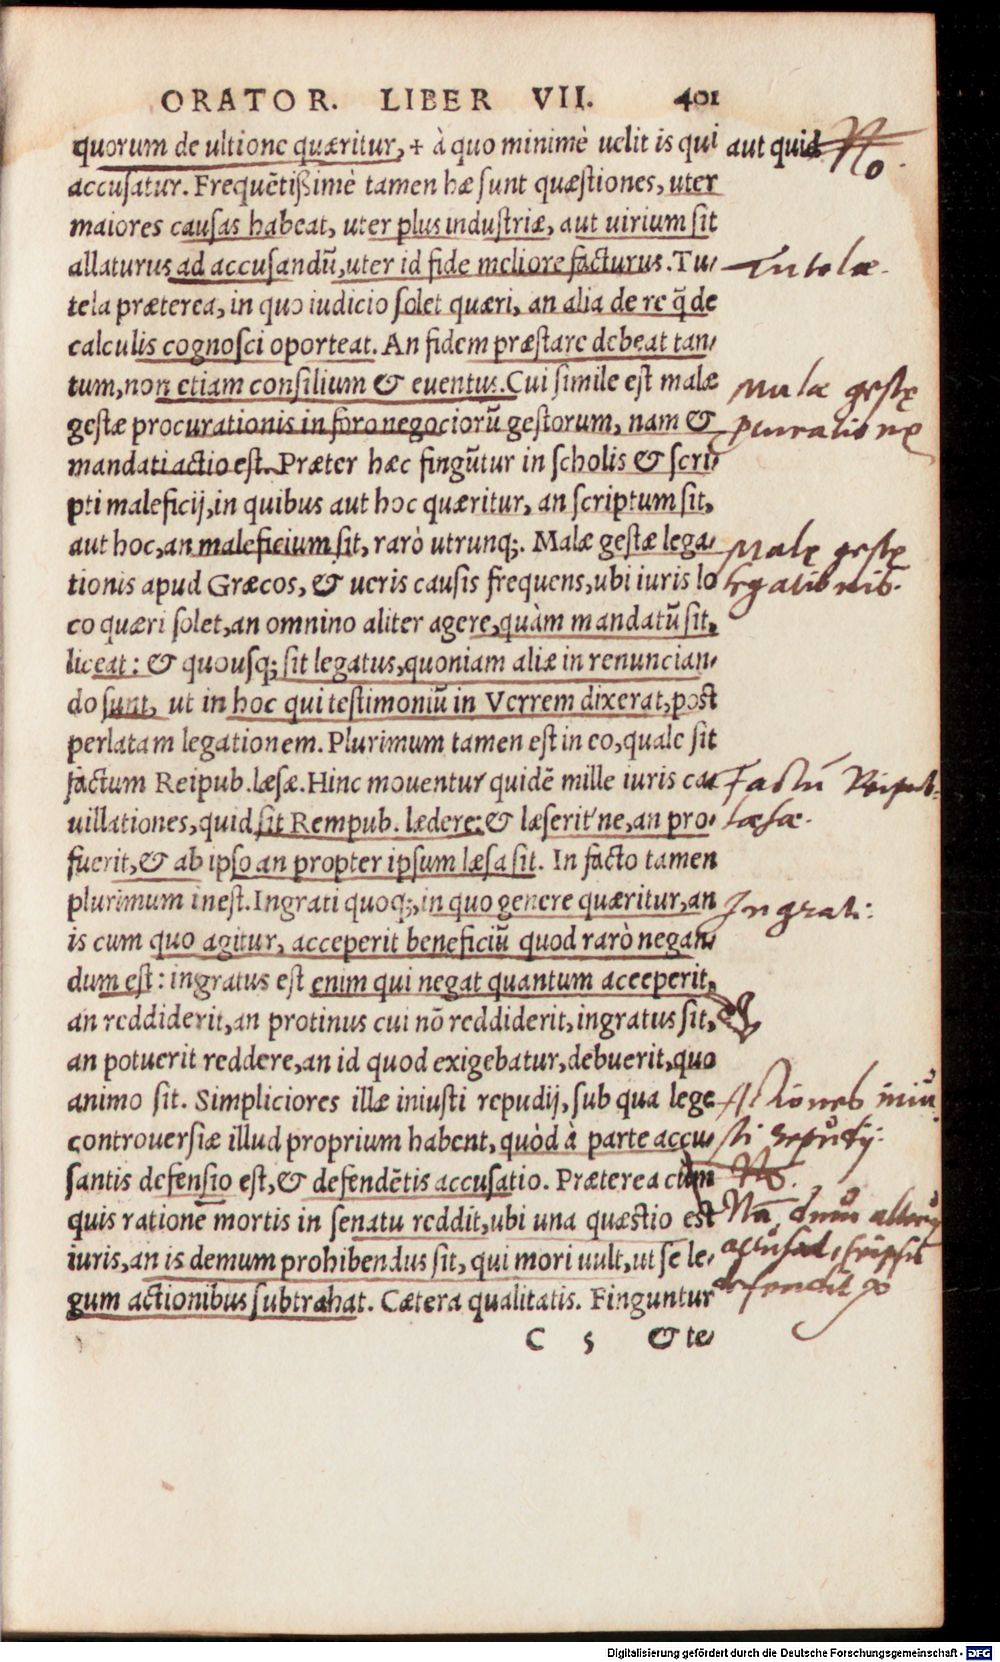 ORATOR. LIBER VII. 401
quorum de ultione quæritur, + à quo minimè uelit is qui aut quid No.
accusatur. Frequẽtißimè tamen hæ sunt quæstiones, uter
maiores causas habeat, uter plus industriæ, aut uirium sit
allaturus ad accusandũ, uter id fide meliore facturus. Tu- Tutelæ.
tela præterea, in quo iudicio solet quæri, an alia de re q̃ de
calculis cognosci oporteat. An fidem præstare debeat tan-
tum, non etiam consilium & euentus. Cui simile est malæ Malæ gestę
gestæ procurationis in foro negociorũ gestorum, nam & procurationę
mandati actio est. Præter hæc fingũtur in scholis & scri-
pti maleficij, in quibus aut hoc quæritur, an scriptum sit,
aut hoc, an maleficium sit, rarò utrunq;. Malæ gestæ lega- Malę gestę
tionis apud Græcos, & ueris causis frequens, ubi iuris lo legationis.
co quæri solet, an omnino aliter agere, quàm mandatũ sit,
liceat: & quousq; sit legatus, quoniam aliæ in renuncian-
do sunt, ut in hoc qui testimoniũ in Verrem dixerat, post
perlatam legationem. Plurimum tamen est in eo, quale sit
factum Reipub. læsæ. Hinc mouentur quidẽ mille iuris ca- Factũ Reipub.
uillationes, quid sit Rempub. lædere: & læserit'ne, an pro- læsæ.
fuerit, & ab ipso an propter ipsum læsa sit. In facto tamen
plurimum inest. Ingrati quoq;, in quo genere quæritur, an Ingrati:
is cum quo agitur, acceperit beneficiũ quod rarò negan-
dum est: ingratus est enim qui negat quantum aceeperit,
an reddiderit, an protinus cui nõ reddiderit, ingratus sit,
an potuerit reddere, an id quod exigebatur, debuerit, quo
animo sit. Simpliciores illæ iniusti repudij, sub qua lege Actiones iniu
controuersiæ illud proprium habent, quòd à parte accu- sti repudij:
santis defensio est, & defendẽtis accusatio. Præterea cùm No.
quis rationẽ mortis in senatu reddit, ubi una quæstio est Nã, dum alterũ
iuris, an is demum prohibendus sit, qui mori uult, ut se le- accusat,
gum actionibus subtrahat. Cætera qualitatis. Finguntur defendit
C 5 & te-
Digitalisierung gefördert durch die Deutsche Forschungsgemeinschaft - DFG